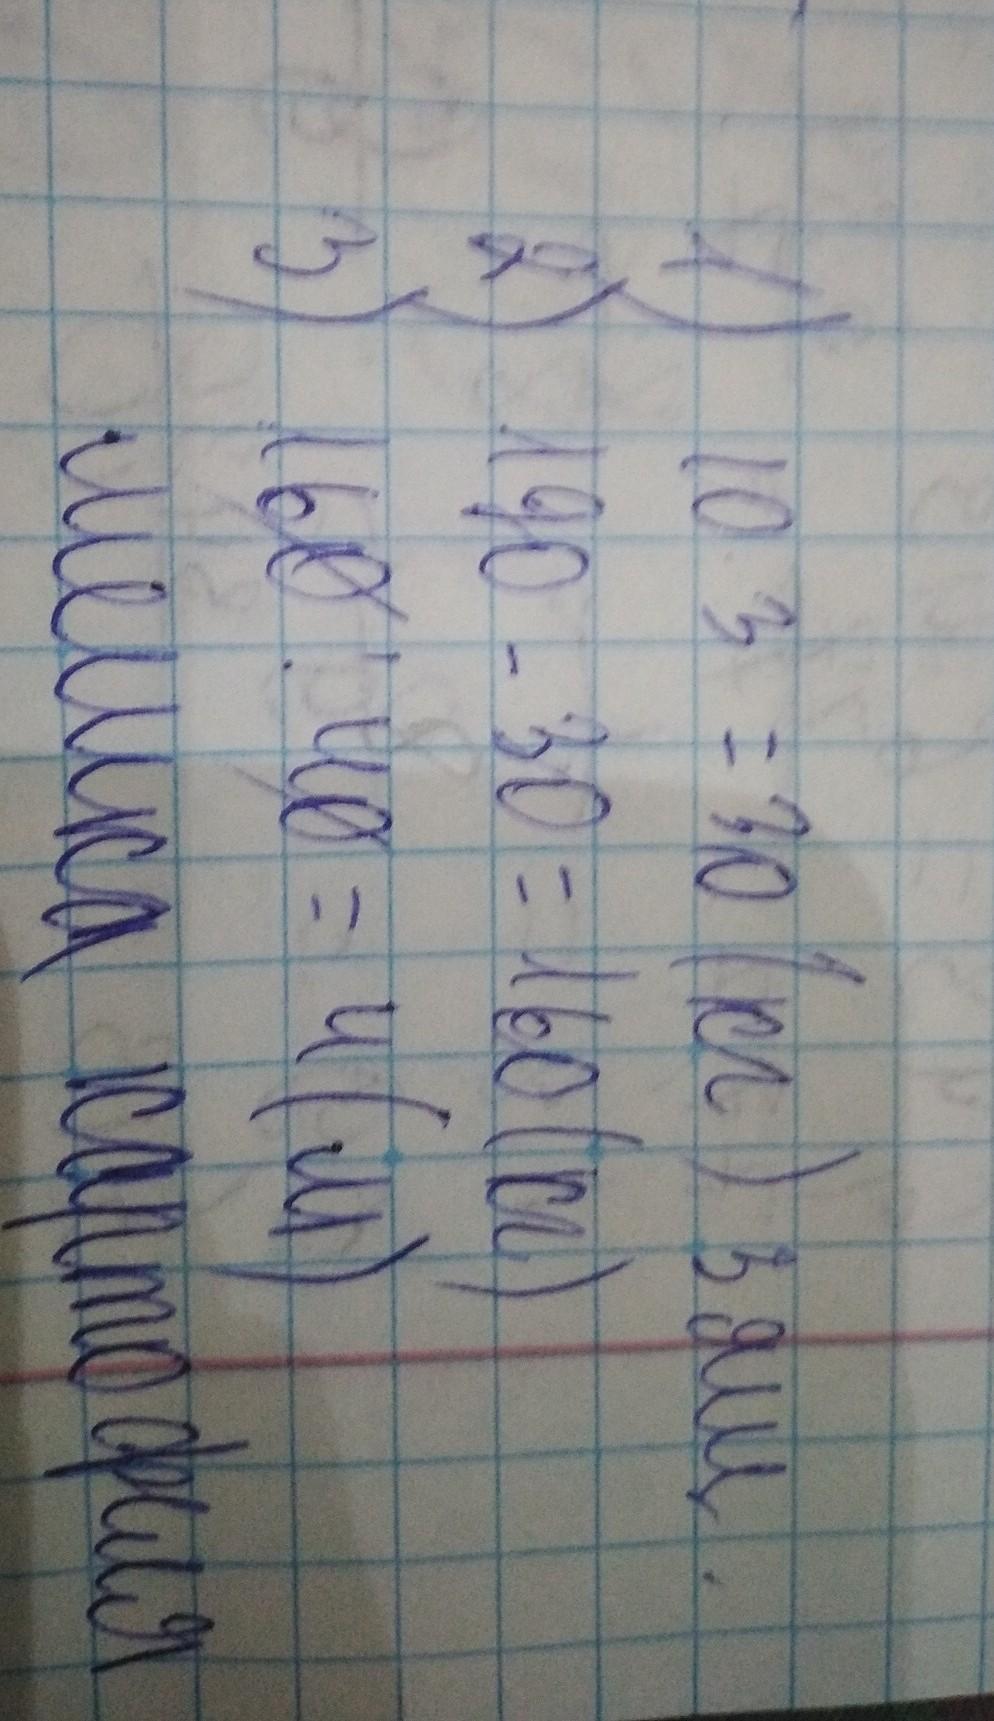 1) 10 · 3 = 30 (кг) 3 ящ.
2) 190 - 30 = 160 (кг)
3) 160 : 40 = 4 (м)
мешка картофеля